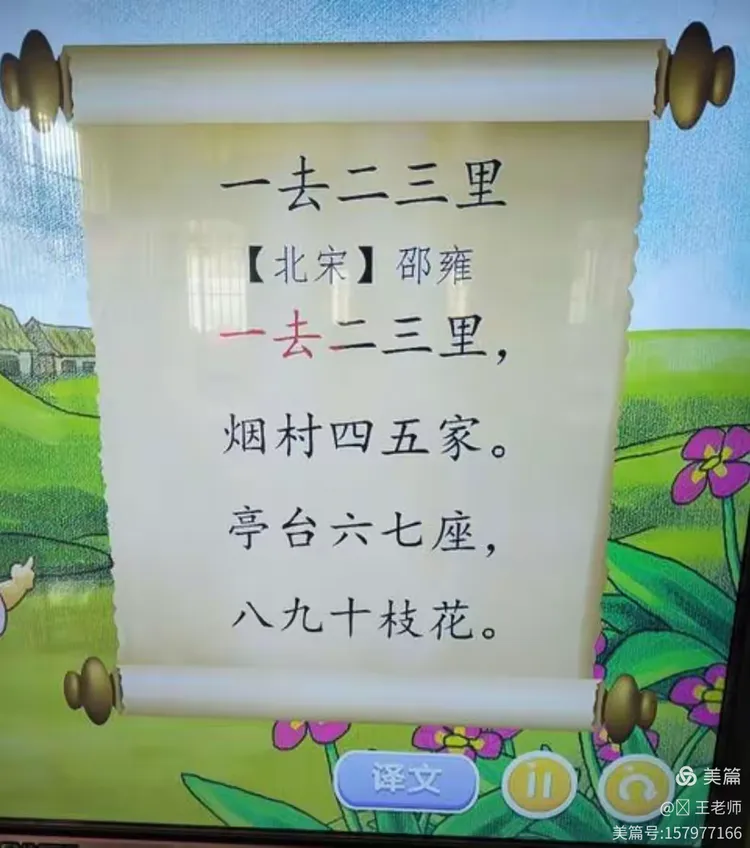 一去二三里
【北宋】邵雍
一去二三里，
烟村四五家。
亭台六七座，
八九十枝花。
译文
美篇
@ 王老师
美篇号:157977166